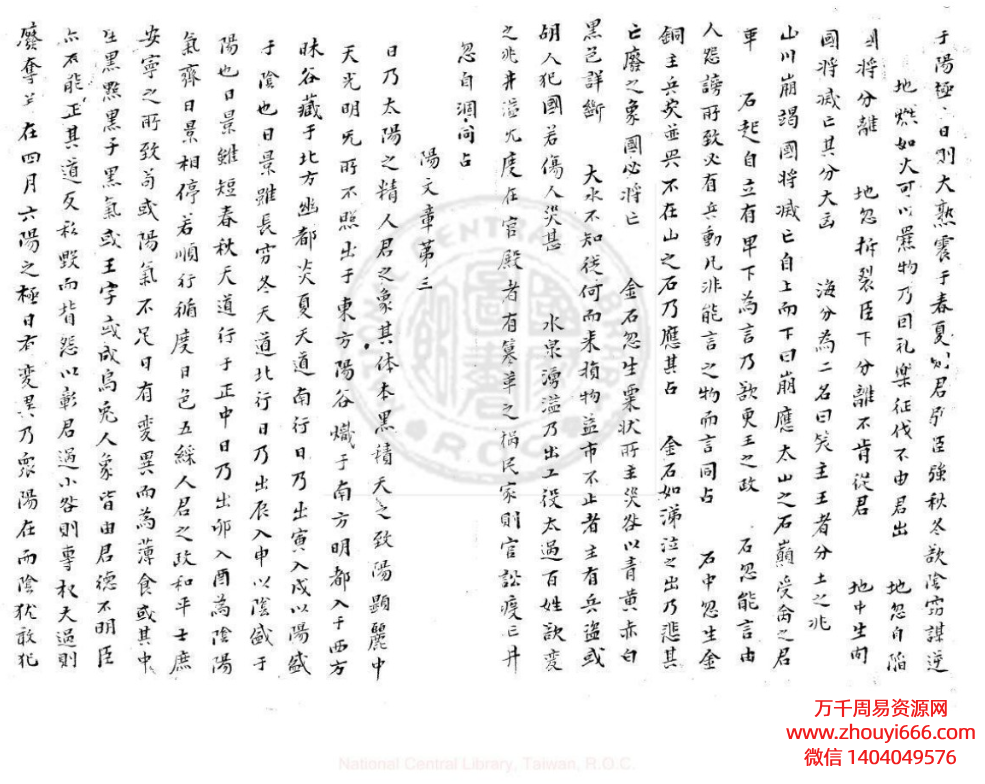 于陽極之日則大熱震于春夏則君弱臣強秋冬欲陰窃謀逆
地燃如火可以㸑物乃曰礼樂征伐不由君出　地忽自陷
國将分離　地忽拆裂臣下分離不肯従君　地中生肉
國将滅亡其分大凶　海分為二名曰 主王者分土之兆
山川崩竭國将滅亡自上而下曰崩應太山之石巔受禽之君
軍　石起自立有甲下為言乃欲更王之政　石忽能言由
人怨謗所致必有兵動凡非能言之物而言同占　石中忽生金
銅主兵矣並災不在山之石乃應其占　金石如涕泣之出乃悲其
亡廢之象國必将亡　金石忽生粟状所主災咎以青黄赤白
黑色詳斷　大水不知従何而来損物益市不止者主有兵盗或
胡人犯國若傷人災甚　水泉湧溢乃出工役太過百姓欲変
之兆井溢尤度在官殿者有簒革之禍民家則官訟疫亡井
忽自涸同占
陽文章苐三
日乃太陽之精人君之象其体本黑積天之致陽顕麗中
天光明旡所不照出于東方陽谷熾于南方明都入于西方
昧谷藏于北方幽都炎夏天道南行日乃出寅入戌以陽盛
于陰也日景雖長窮冬天道北行日乃出辰入申以陰盛于
陽也日景雖短春秋天道行于正中日乃出卯入酉為陰陽
氣齊日景相停若順行循度日色五綵人君之政和平士庶
安寧之所致苟或陽氣不足日有変異而為薄食或其中
生黑㸃黑子黑氣或王字或成烏兎人象皆由君徳不明臣
亦不能正其道反私毀而背怨以彰君過小咎則専权大過則
廢奪 在四月六陽之極日有変異乃衆陽在而陰犹敢犯
CENTRAL
R.O.C.
National Central Library, Taiwan, R.O.C.
万千周易资源网
www.zhouyi666.com
微信 1404049576